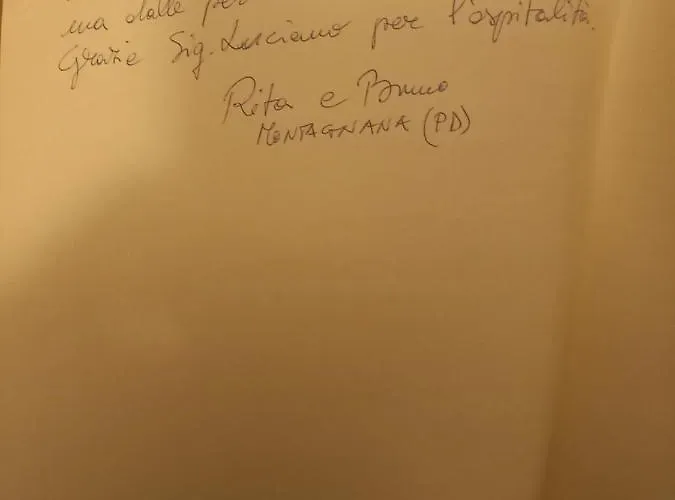 ma dalle per
Grazie Sig. Luciano per l'ospitalità.
Rita e Bruno
MONTAGNANA (PD)